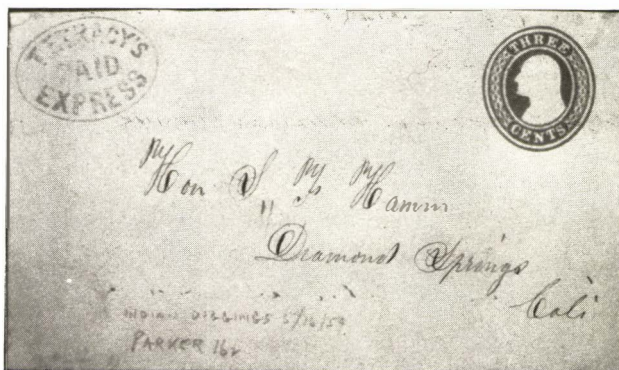 TRACY'S
PAID
EXPRESS
THREE
CENTS
Hon S,, Hamm
Diamond Springs
Cali
INDIAN DIGGINGS 5/16/59
PARKER 162